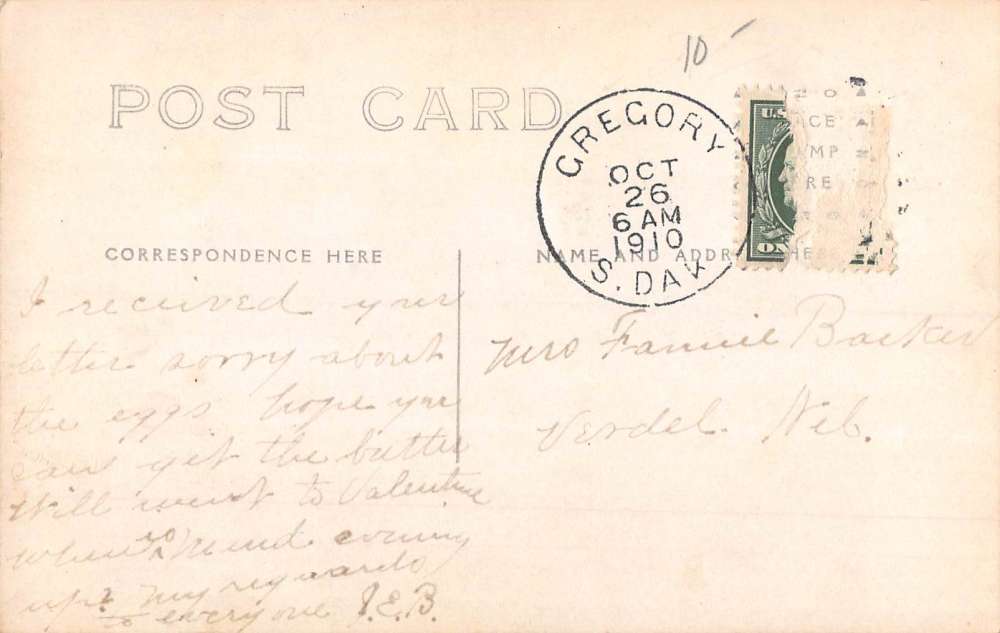 10
POST CARD
GREGORY
OCT
26
6 AM
1910
S. DAK
U.S.
ON
NO
ACE
MP
RE
CORRESPONDENCE HERE
NAME AND ADDR HE
I received your
letter sorry about
the eggs hope you
can get the butter
Will went to Valentine
when
up? My regards
to everyone J.E.B.
Mrs Fannie Barker
Verdel. Neb.